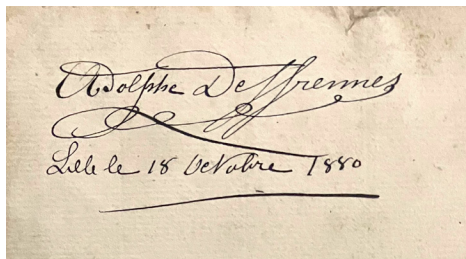 Adolphe Deffrennes
Lille le 18 Octobre 1880